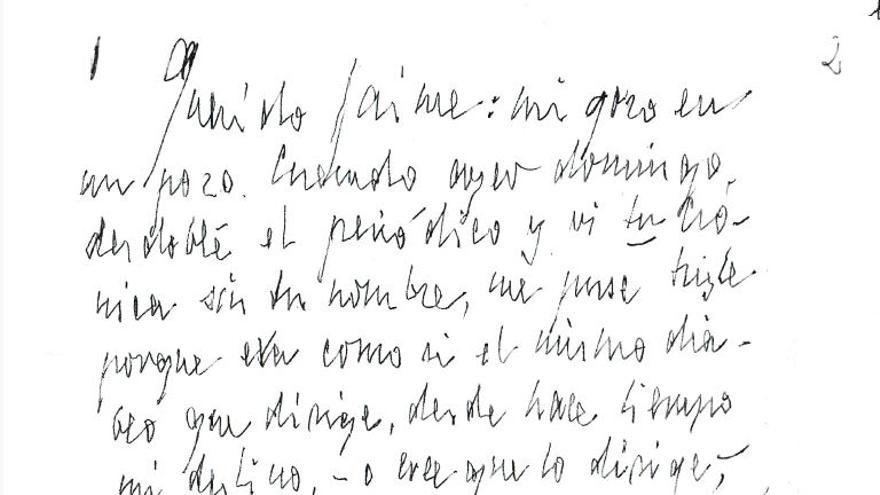 1 2
Querido Jaime: mi gozo en
un pozo. Cuando ayer domingo,
desdoblé el periódico y vi tu cró-
nica sin tu nombre, me puse triste
porque era como si el mismo dia-
blo que dirige, desde hace tiempo
mi destino, – o cree que lo dirige –,